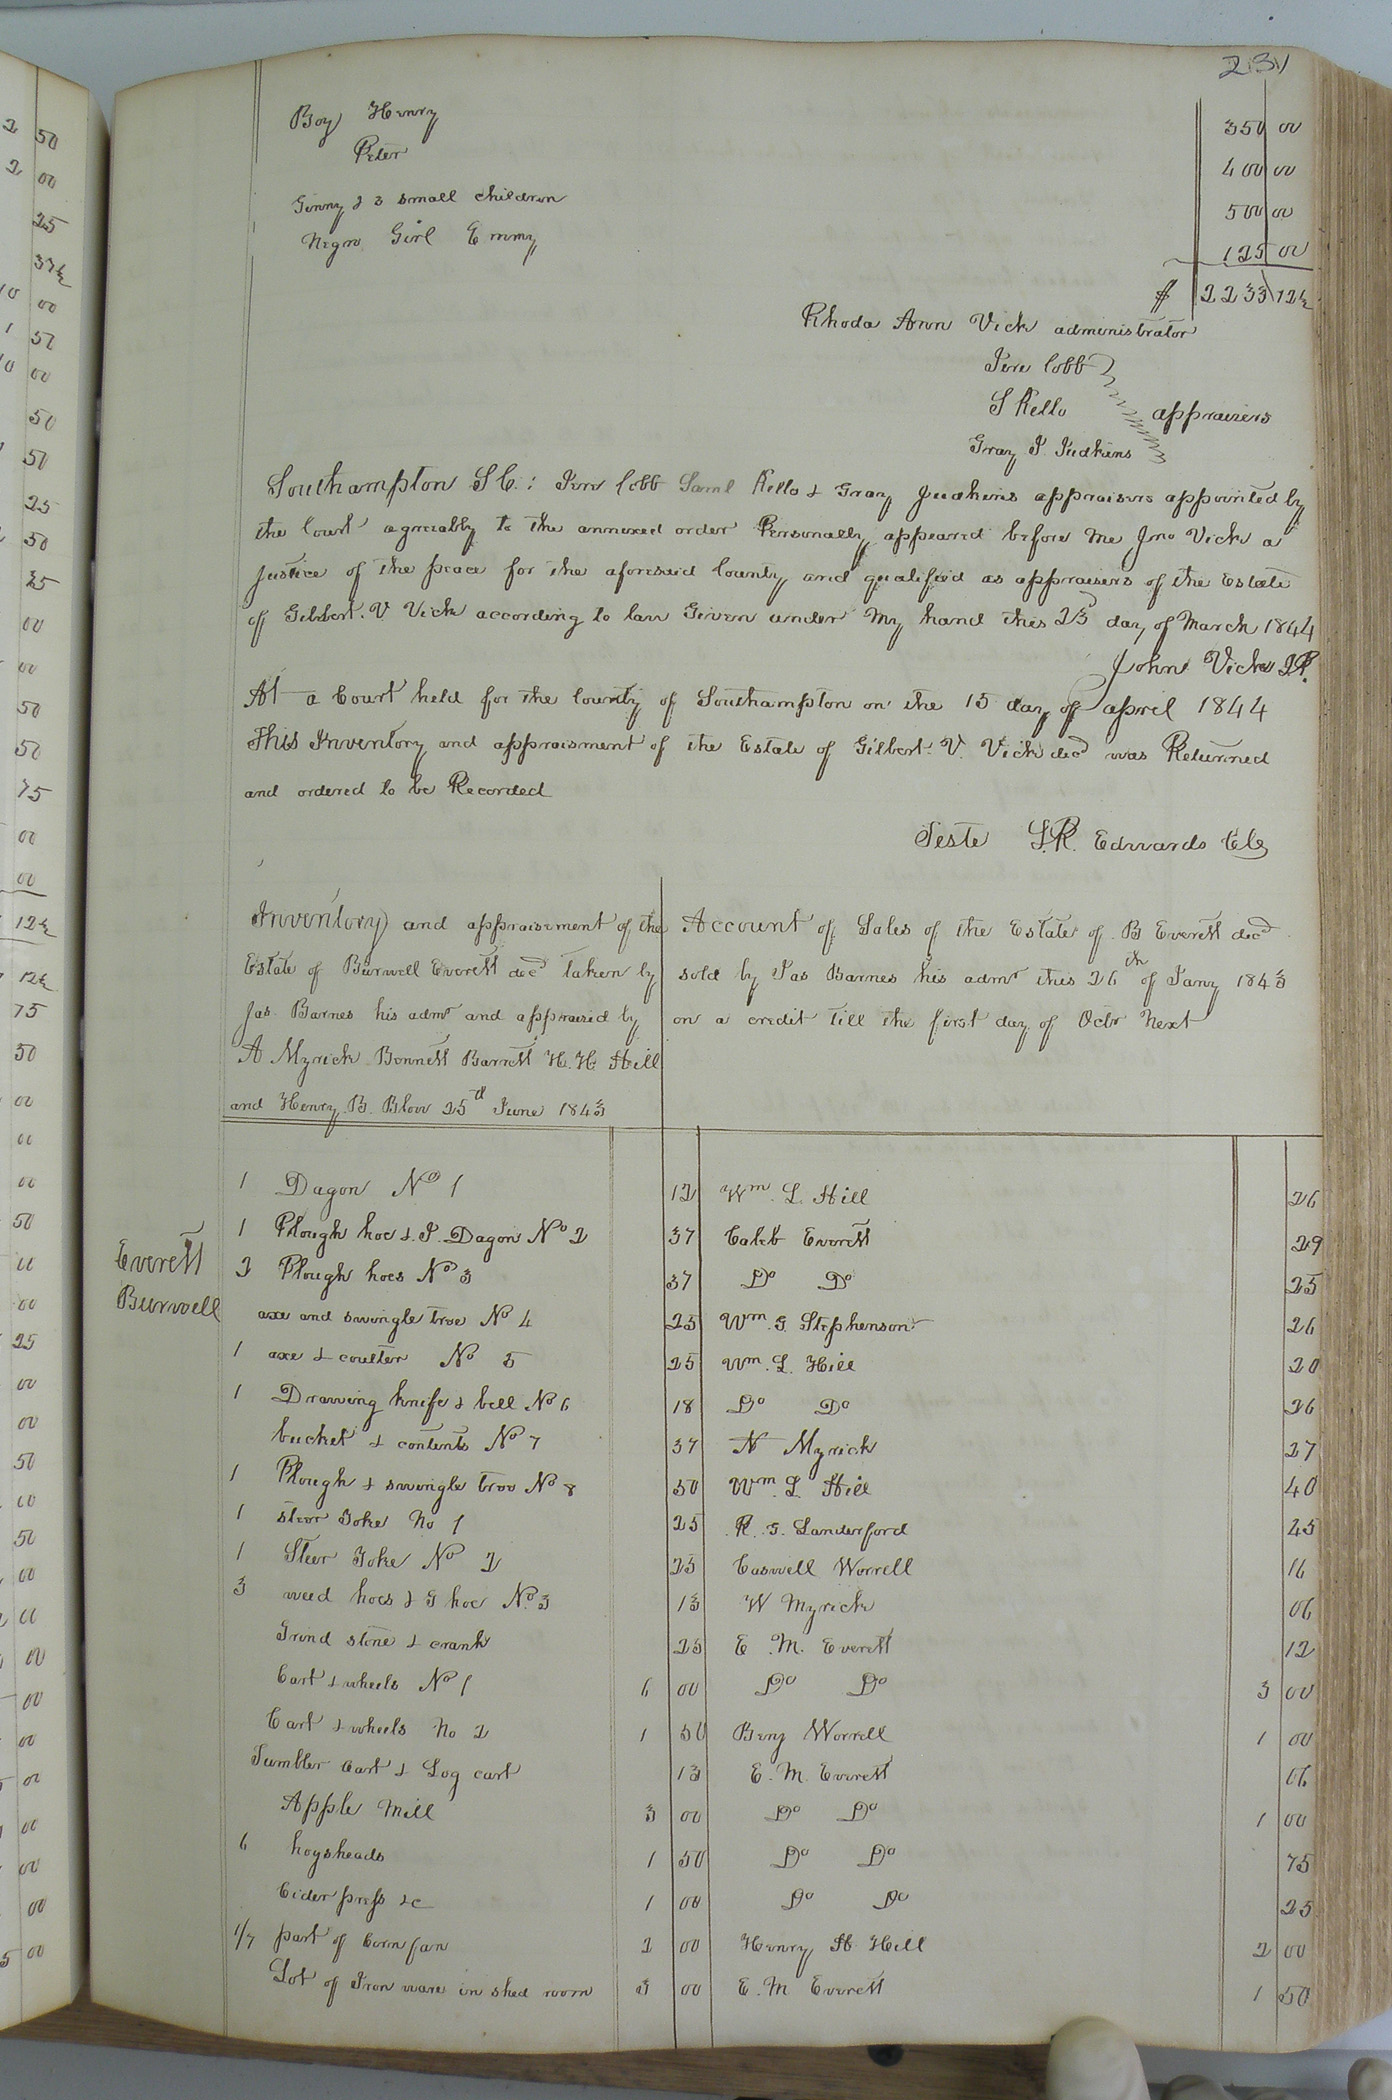 231
Boy Henry 350 00
Peter 400 00
Ginny & 3 small children 500 00
Negro Girl Emmy 125 00
$ 2233 12½
Rhoda Ann Vick administrator
Jere Cobb
S Kello appraisers
Gray J. Judkins
Southampton SC.: Jere Cobb Saml Kello & Gray Judkins appraisers appointed by
the Court agreeably to the annexed order Personally appeared before me Jno Vick a
Justice of the peace for the aforesaid County and qualified as appraisers of the Estate
of Gilbert. V Vick according to law Given under My hand this 23d day of March 1844
John Vick JP.
At a Court held for the County of Southampton on the 15 day of april 1844
This Inventory and appraisment of the Estate of Gilbert. V. Vick decd was Returned
and ordered to be Recorded
Teste L.R. Edwards Clk
Inventory and appraisement of the
Estate of Burwell Everett decd taken by
Jas Barnes his admr and appraised by
A Myrick Bennett Barrett H. H. Hill
and Henry B. Blow 25th June 1843
Account of Sales of the Estate of B Everett decd
sold by Jas Barnes his admr this 26th of Jany 1843
on a credit till the first day of Octr Next
Everett
Burwell
1 Dagon No 1 12 Wm. L. Hill 26
1 Plough hoe & P. Dagon No 2 37 Caleb Everett 29
2 Plough hoes No 3 37 Do Do 25
axe and swingle tree No 4 25 Wm. G. Stephenson 26
1 axe & coulter No 5 25 Wm. L. Hill 20
1 Drawing knife & bell No 6 18 Do Do 26
bucket & contents No 7 37 N Myrick 27
1 Plough & swingle tree No 8 50 Wm. L. Hill 40
1 steer Yoke No 1 25 R. G. Landerford 45
1 Steer Yoke No 2 25 Caswell Worrell 16
3 weed hoes & G hoe No. 3 13 W Myrick 06
Grind stone & crank 25 E. M. Everett 12
Cart & wheels No 1 6 00 Do Do 3 00
Cart & wheels No 2 1 50 Benj Worrell 1 00
Tumbler Cart & Log cart 13 E. M. Everett 06
Apple Mill 3 00 Do Do 1 00
6 hogsheads 1 50 Do Do 75
Cider press &c 1 00 Do Do 25
1/7 part of Corn fan 2 00 Henry H Hill 2 00
Lot of Iron ware in shed room 3 00 E. M Everett 1 50